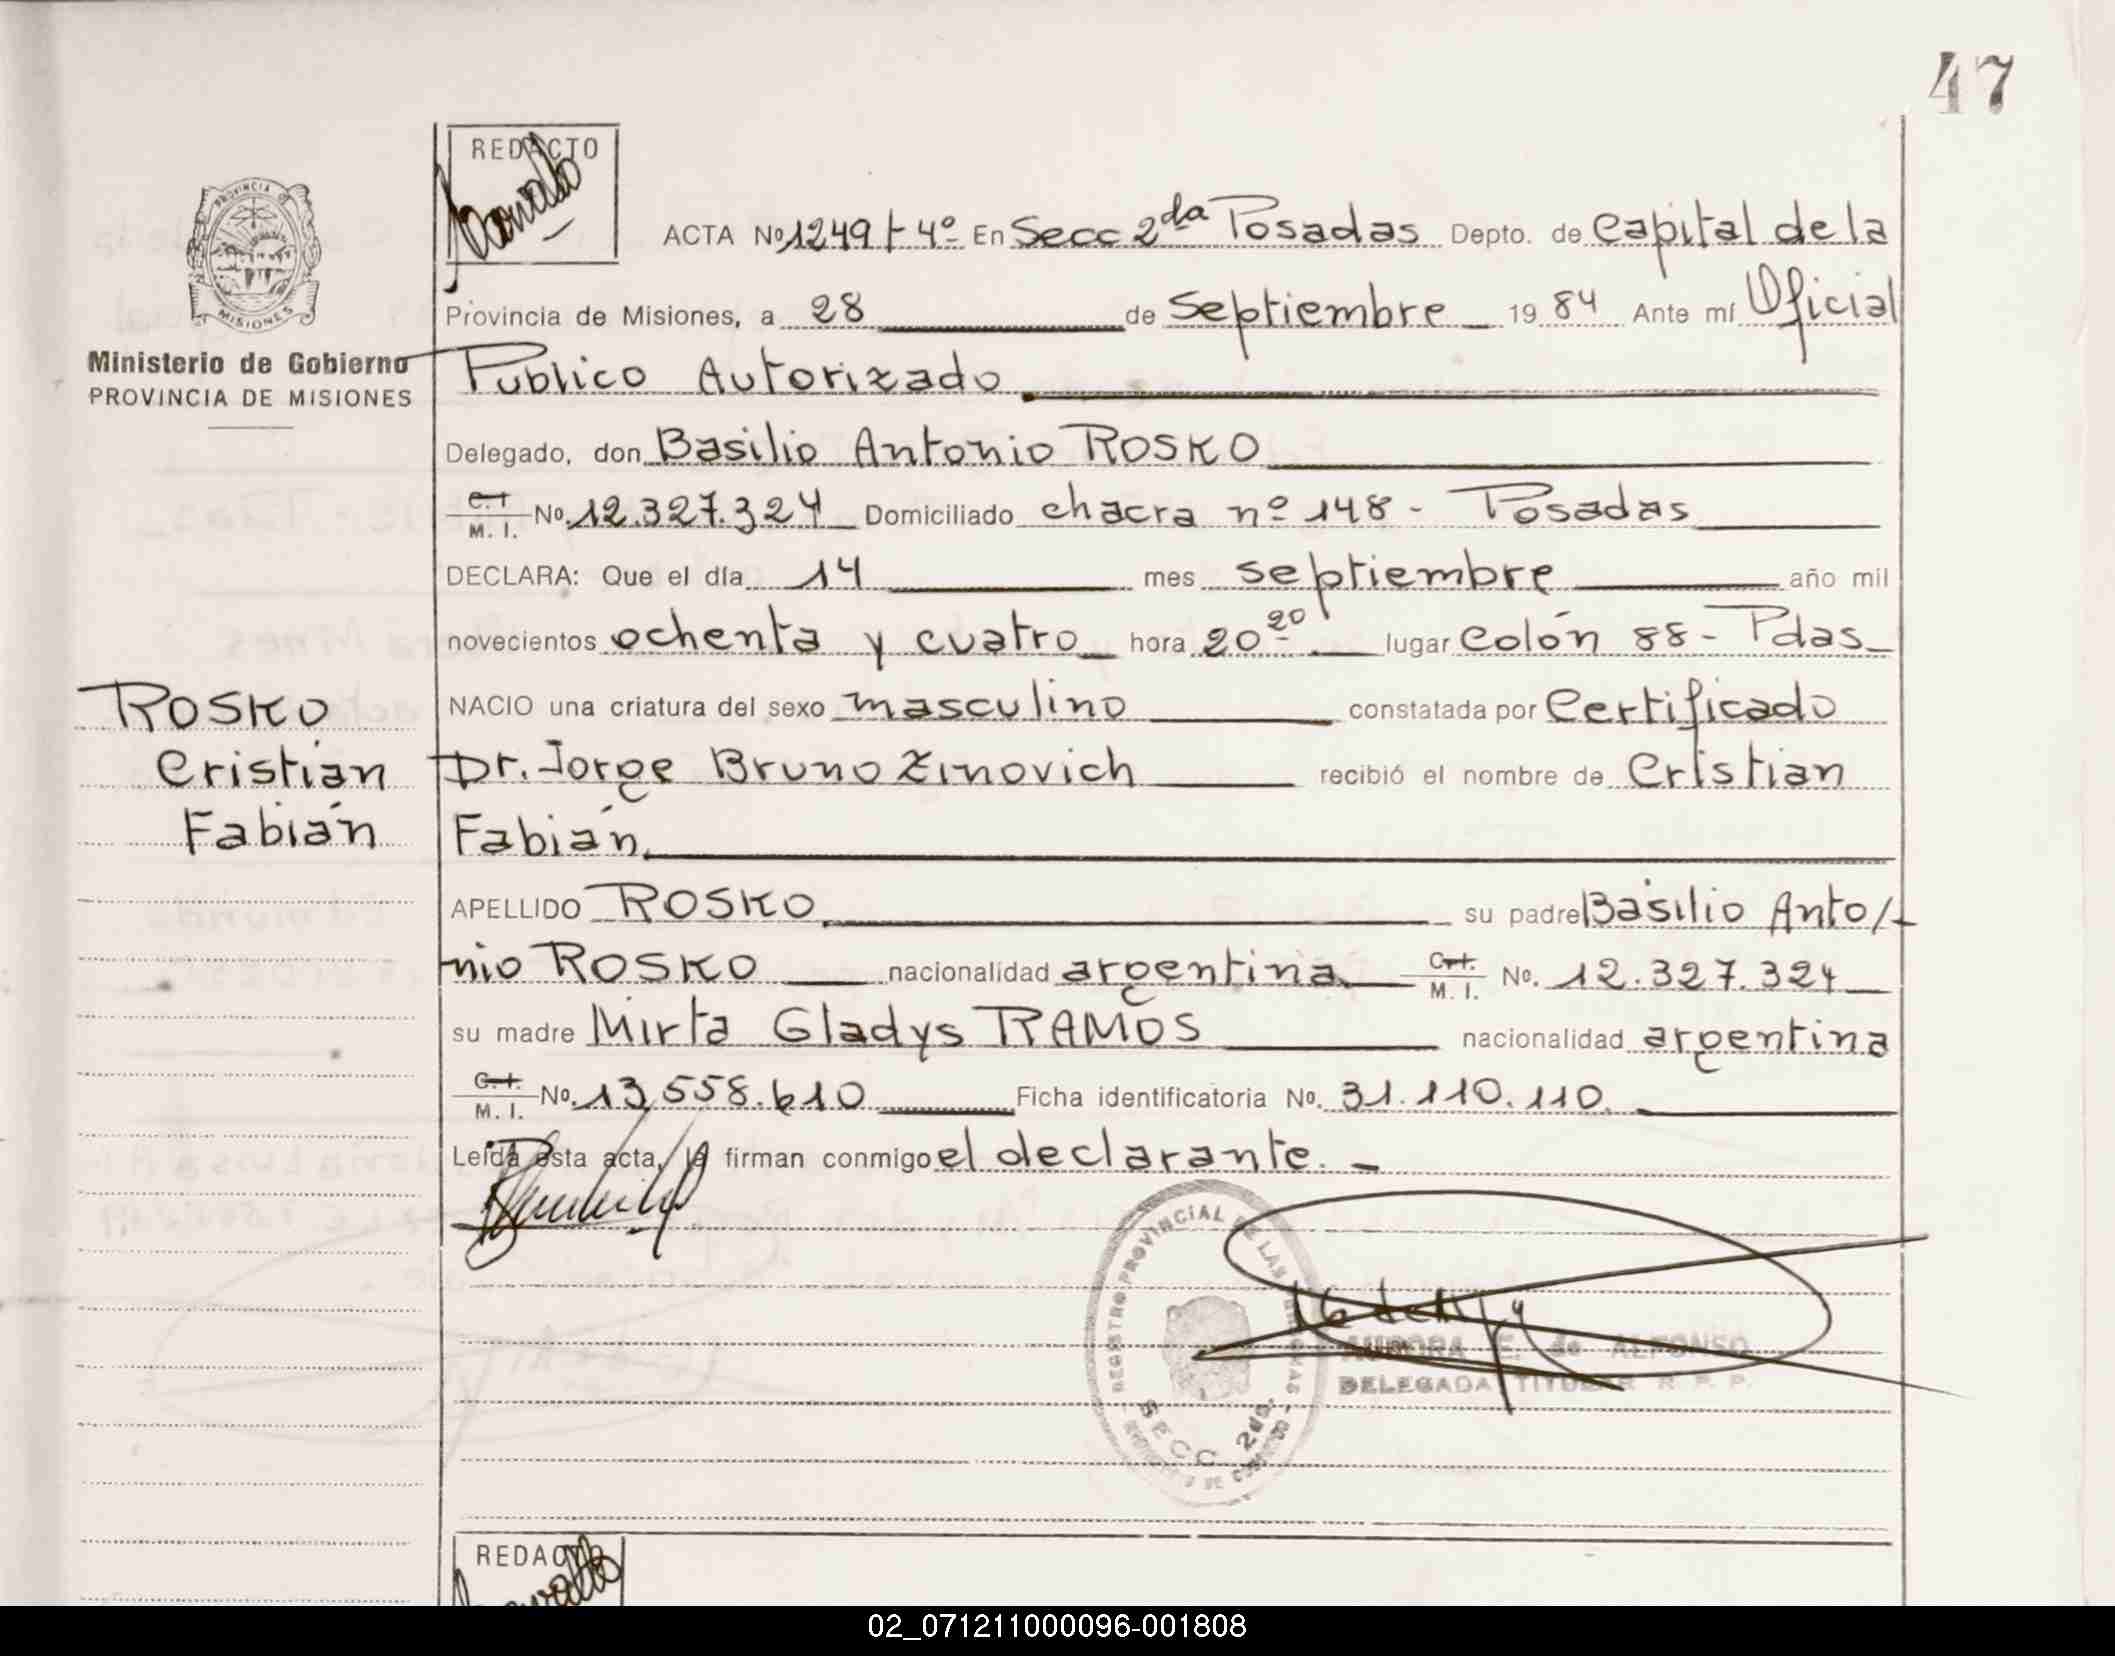 47
REDACTO
PROVINCIA DE
MISIONES
Ministerio de Gobierno
PROVINCIA DE MISIONES
ACTA Nº 1249 t-4º En Secc 2da Posadas Depto. de Capital de la
Provincia de Misiones, a 28 de Septiembre 1984 Ante mí Oficial
Publico Autorizado
Delegado, don Basilio Antonio ROSKO
C.I. M. I. Nº. 12.327.324 Domiciliado chacra nº 148 - Posadas
DECLARA: Que el día 14 mes septiembre año mil
novecientos ochenta y cuatro hora 20 20 lugar Colón 88 - Pdas
ROSKO
Cristian
Fabián
NACIO una criatura del sexo masculino constatada por Certificado
Dr. Jorge Bruno Zinovich recibió el nombre de Cristian
Fabián.
APELLIDO ROSKO su padre Basilio Anto/-
nio ROSKO nacionalidad argentina C.I. M. I. Nº. 12.327.324
su madre Mirta Gladys RAMOS nacionalidad argentina
C.I. M. I. Nº. 13,558.610 Ficha identificatoria Nº. 31.110.110.
Leída esta acta, la firman conmigo el declarante. -
REGISTRO PROVINCIAL DE LAS PERSONAS
SECC 2da.
AURORA E. de ALFONSO
DELEGADA TITULAR R. P. P.
REDACTO
02_071211000096-001808